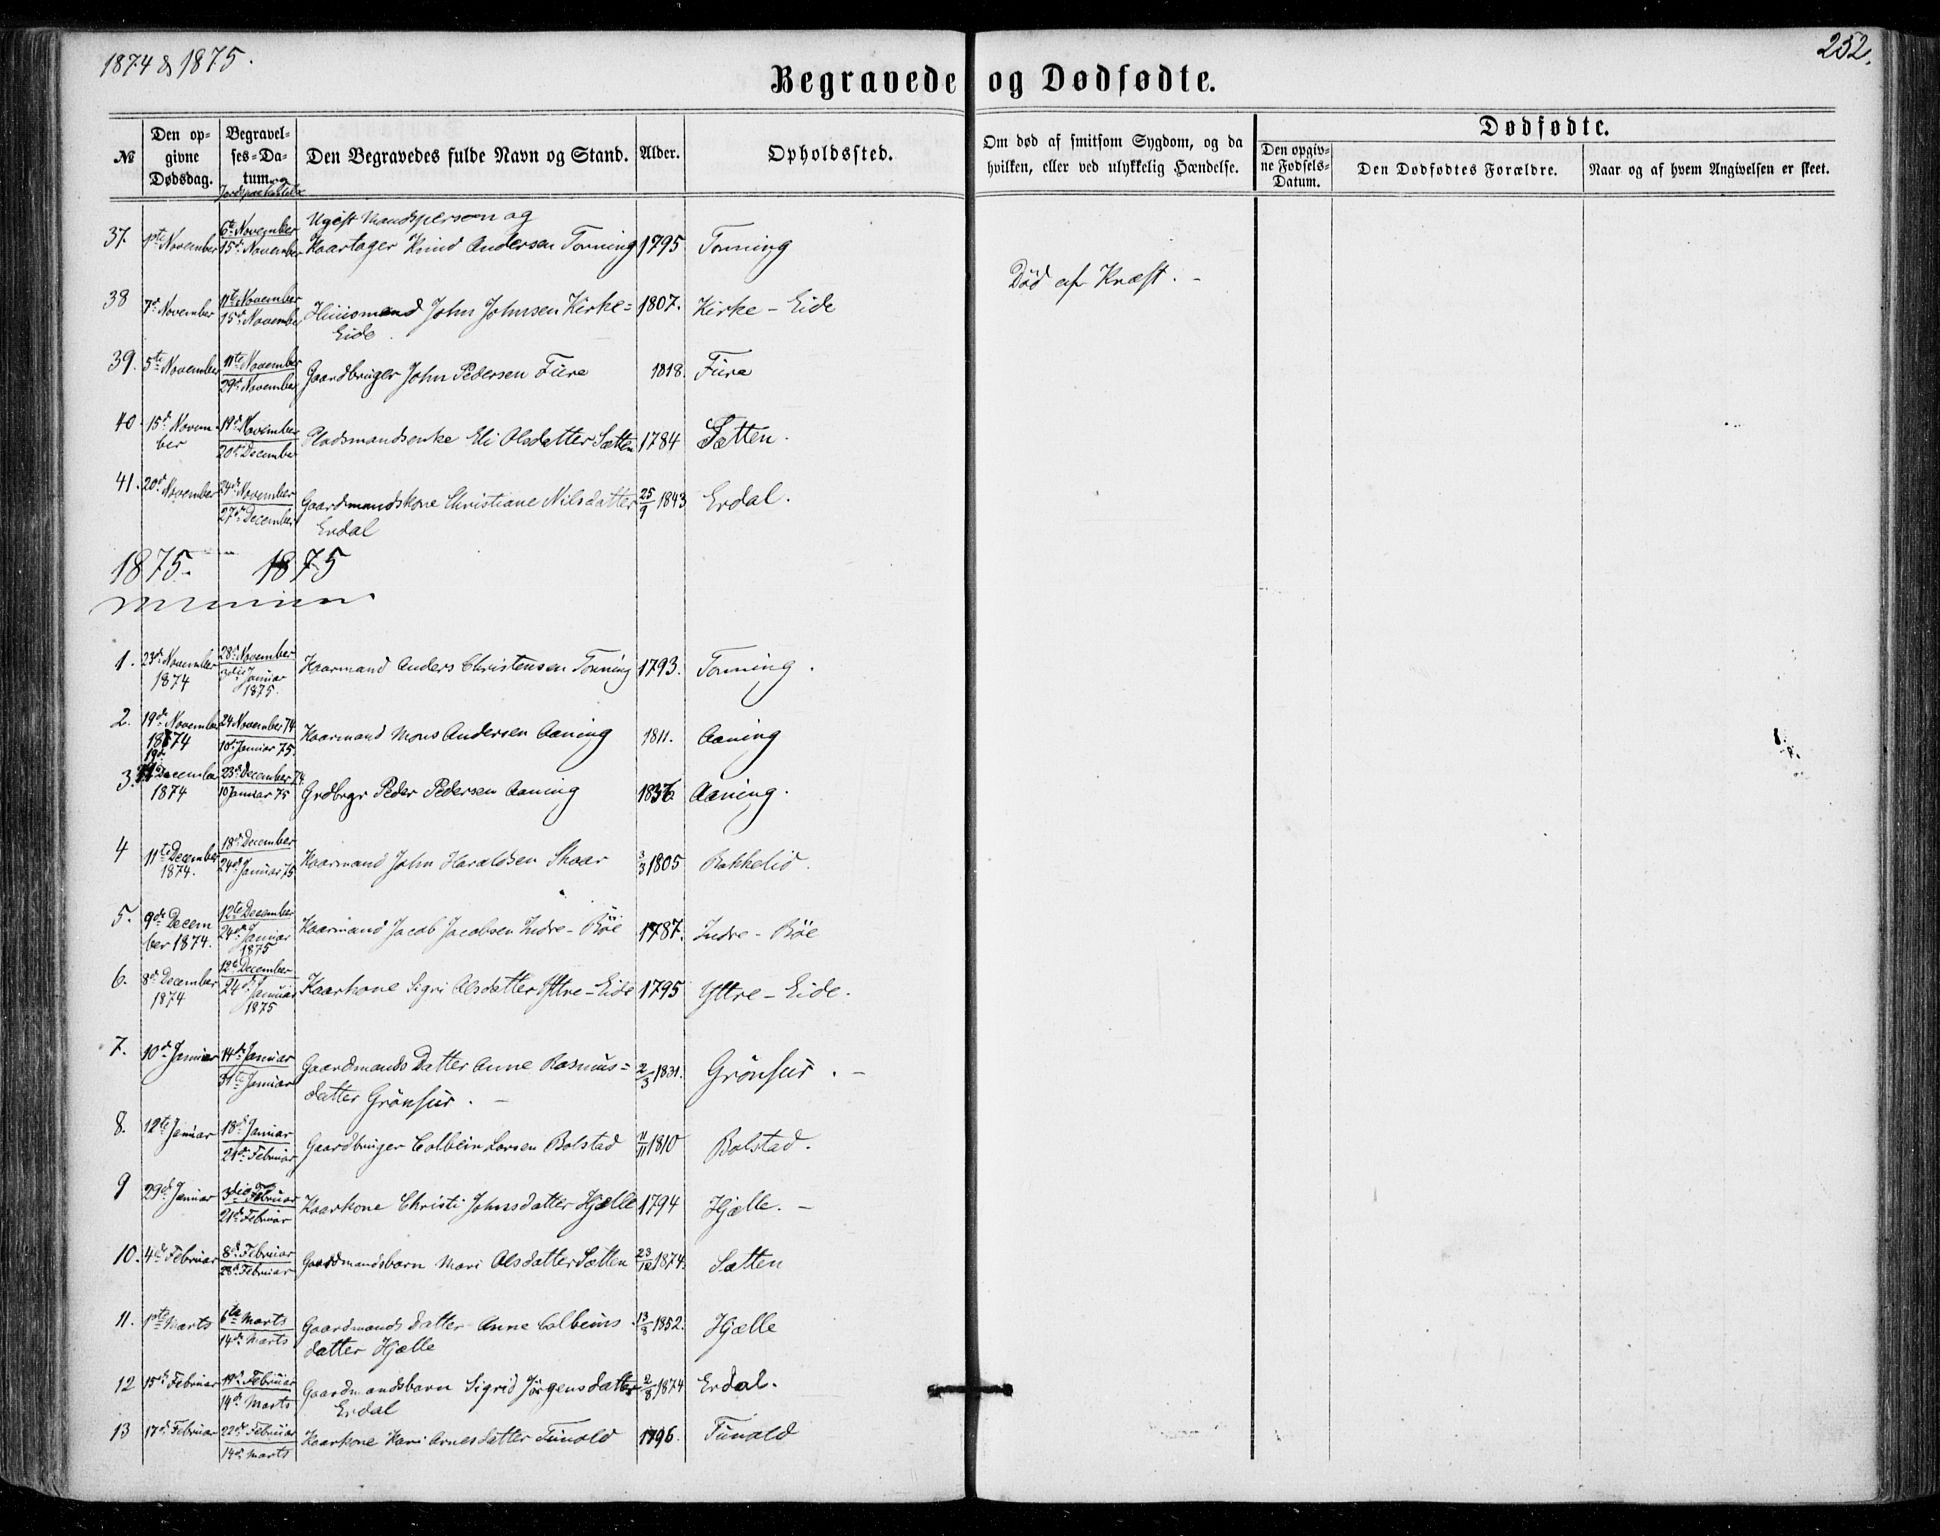 1874 & 1875.
252.
Begravede og Dødfødte.
№
Den opgivne Dødsdag.
Begravelses-Datum og Jordpaakastelse
Den Begravedes fulde Navn og Stand.
Alder.
Opholdssted.
Om død af smitsom Sygdom, og da hvilken, eller ved ulykkelig Hændelse.
Dødfødte.
Den opgivne Fødsels-Datum.
Den Dødfødtes Forældre.
Naar og af hvem Angivelsen er skeet.
Ugift Mandsperson og
37. 1ste November 6te November 15de November Kaartager Knud Andersen Tonning 1795 Tonning
38 7de November 11te November 15de November Huusmand John Johnsen Kirke= 1807. Kirke-Eide Død af Kræft. -
Eide.
39. 5te November 11te November 29de November Gaardbruger John Pedersen Fure 1818. Fure
40. 15de Novem- 19de November Pladsmandsenke Eli Olsdatter Sætten 1784 Sætten.
ber 20de December
41. 20de November 24de November 27de December Gaardmandskone Christiane Nilsdatter 25/9 1843 Erdal.
Erdal
1875. 1875
1. 23de November 28de November Kaarmand Anders Christensen Tonning 1793. Tonning.
1874 3die Januar 1875.
2. 19de November 24 November 74 Kaarmand Mons Andersen Aaning 1811. Aaning
1874 10de Januar 75.
3. 19de December 23de December 74 Grdbrgr Peder Pedersen Aaning 1836 Aaning.
1874 10 Januar 75
4 11te December 18de December Kaarmand John Haraldsen Skaar 3/3 1805 Bakkelid.
1874. 24de Januar 75
5. 9de Decem 12te December Kaarmand Jacob Jacobsen Indre-Bøe 1787. Indre-Bøe
ber 1874. 24de Januar 1875
6. 8de December 12te December Kaarkone Sigri Olsdatter Yttre-Eide 1795 Yttre-Eide.
1874 24de Januar 1875
7. 10de Januar 14de Januar 31te Januar Gaardmands Datter Anne Rasmus= 2/3 1831. Grönfur. -
datter Grönfur. -
8. 12te Januar 18de Januar 21de Februar Gaardbruger Colbein Larsen Bolstad 11/11 1810 Bolstad.
9 29de Januar 3die Februar 21de Februar Kaarkone Christi Johnsdatter Hjelle 1794 Hjelle. -
10. 4de Februar 8de Februar 28de Februar Gaardmandsbarn Mari Olsdatter Sætten 23/12 1874. Sætten
11. 1ste Marts 6te Marts 14de Marts Gaardmands datter Anne Colbeins 13/3 1852. Hjelle
datter Hjelle
12 15de Februar 19de Februar 14de Marts Gaardmandsbarn Sigrid Jørgensdatter 2/8 1874 Erdal.
Erdal
13 17de Februar 22de Februar 14de Marts Kaarkone Kari Arnesdatter Tunold 1796. Tunold